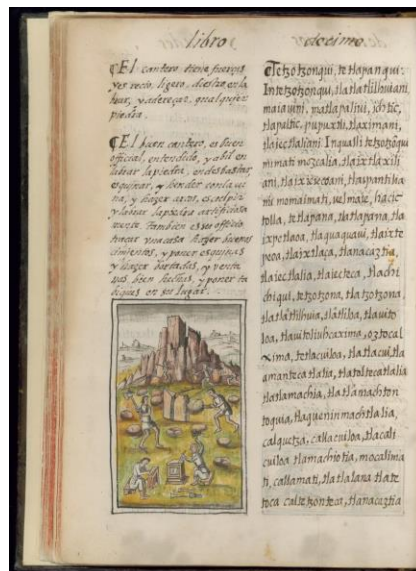 libro decimo
¶El cantero tiene fuerças
y es recio, ligero, diestro en la
brar, y adereçar, qualquier
piedra.
¶El buen cantero, es buen
official, entendido, y abil en
labrar la piedra, en desbastar,
esquinar, y hender con la cu
ña, y hazer arcos, esculpir
y labrar la piedra artificiosa
mente. tambien es su officio,
traçar una casa hazer buenos
cimientos, y poner esquinas
y hazer portadas, y venta
nas bien hechas, y poner ta
biques en su lugar.
¶Tetzotzonqui, tetlapanqui:
In tetzotzonqui, tlatlatlilhuiani,
maiauini, motlapaliui, ichtic,
tlapaltic, pupuxtli, tlaximani,
tlaiectlaliani. In qualli tetzotzoqui
mimati mozcalia, tlaixtlaxili
ani, tlaixieiecoani, tlaipantilia
ni momaimati, uel mole, hacic
tolla, tetlapana, tlatlapana, tla
ixpetlaoa, tlaquaquaui, tlaixte
peoa, tlaixtlaça, tlanacaztia,
tlaiectlalia, tlaiecteca, tlachi
chiqui, tetzotzona, tlatzotzona,
tlatlatlilhuia, tlatliloa, tlauito
loa, tlauitoliuhcaxima, oztocal
xima, tetlacuiloa, tlatlacuitla
amantecatlalia, tlatoltecatlalia
tlatlamachia, tlatlamachton
toquia, tlaqueninmachtlalia,
calquetza, callacuiloa, tlacali
cuiloa tlamachiotia, mocalima
ti, callamati, tlatlalana tlate
toca caltetzonteca, tlanacaztia